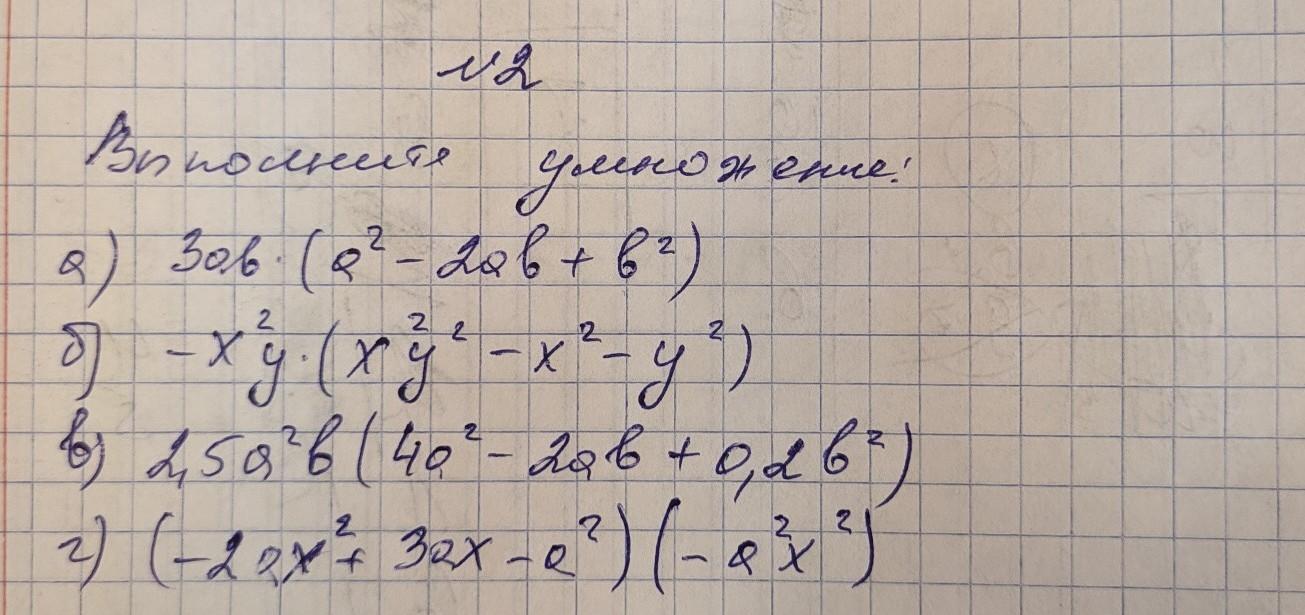 №2
Выполните умножение:
а) 3ab·(a² - 2ab + b²)
б) -x²y·(x²y² - x² - y²)
в) 2,5a²b(4a² - 2ab + 0,2b²)
г) (-2ax² + 3ax - a²)(-a²x²)